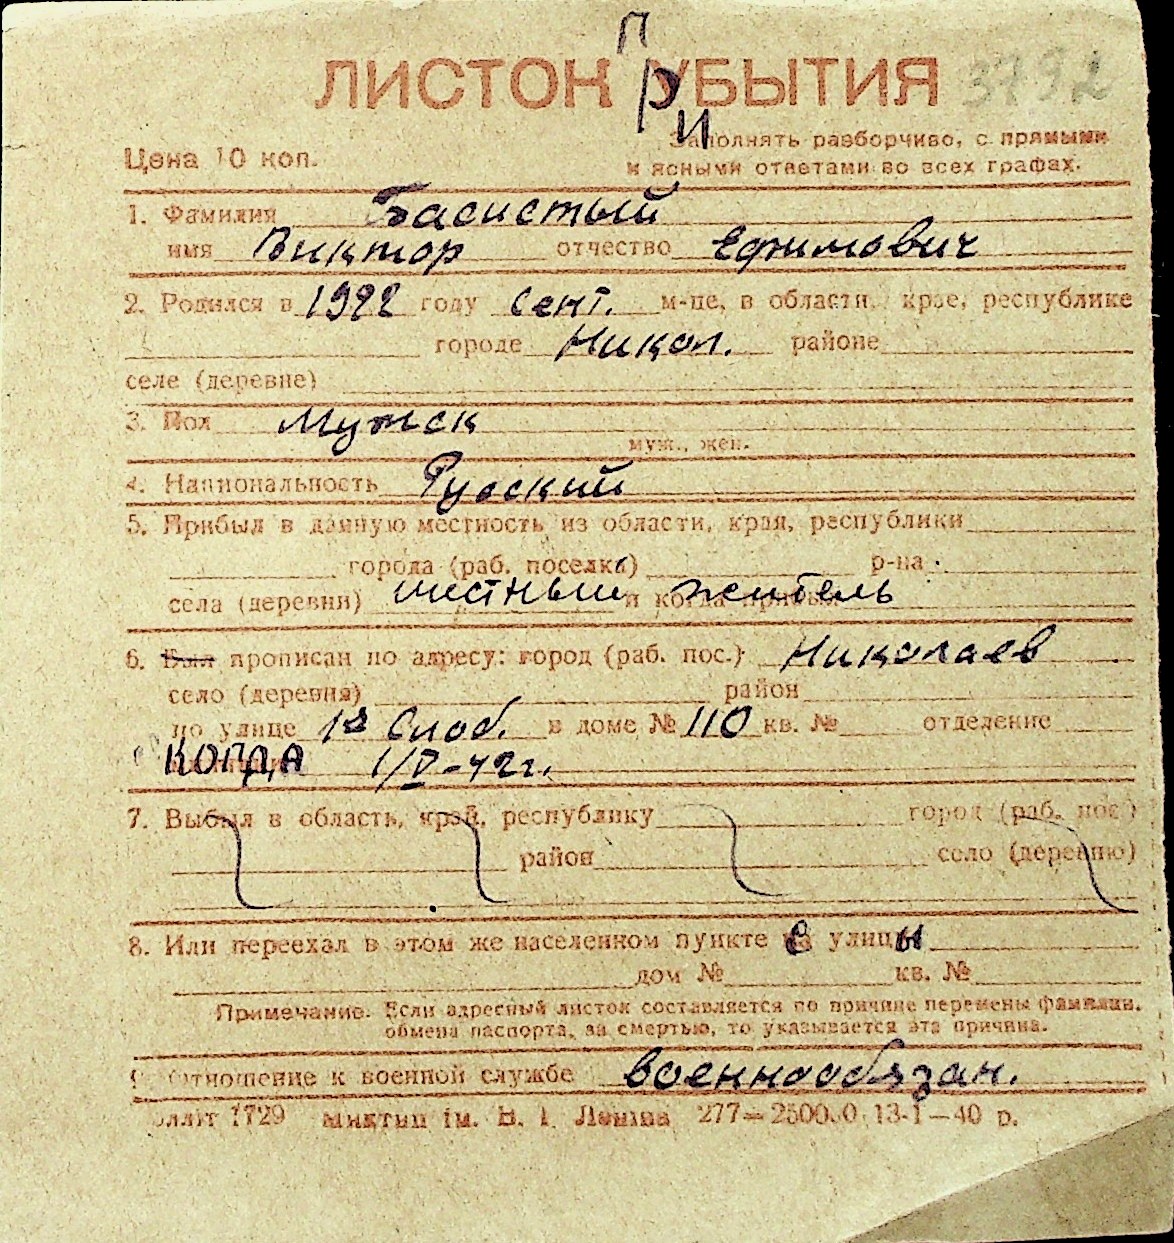 ЛИСТОК ПРИБЫТИЯ 3792
Цена 10 коп.
Заполнять разборчиво, с прямыми
и ясными ответами во всех графах.
1. Фамилия Басистый
имя Виктор отчество Ефимович
2. Родился в 1922 году сент. м-це, в области, крае, республике
городе Никол. районе
селе (деревне)
3. Пол Мужск
муж., жен.
4. Национальность Русский
5. Прибыл в данную местность из области, края, республики
города (раб. поселка) р-на
села (деревни) местный и когда прибыл житель
6. Был прописан по адресу: город (раб. пос.) Николаев
село (деревня) район
по улице 1я Слоб. в доме № 110 кв. № отделение
КОГДА 1/V-42г.
7. Выбыл в область, край, республику город (раб. пос.)
район село (деревню)
8. Или переехал в этом же населенном пункте с улицы
дом № кв. №
Примечание. Если адресный листок составляется по причине перемены фамилии,
обмена паспорта, за смертью, то указывается эта причина.
9. Отношение к военной службе военнообязан.
7729 ім. В. І. Леніна 277—25000 13-І—40 р.